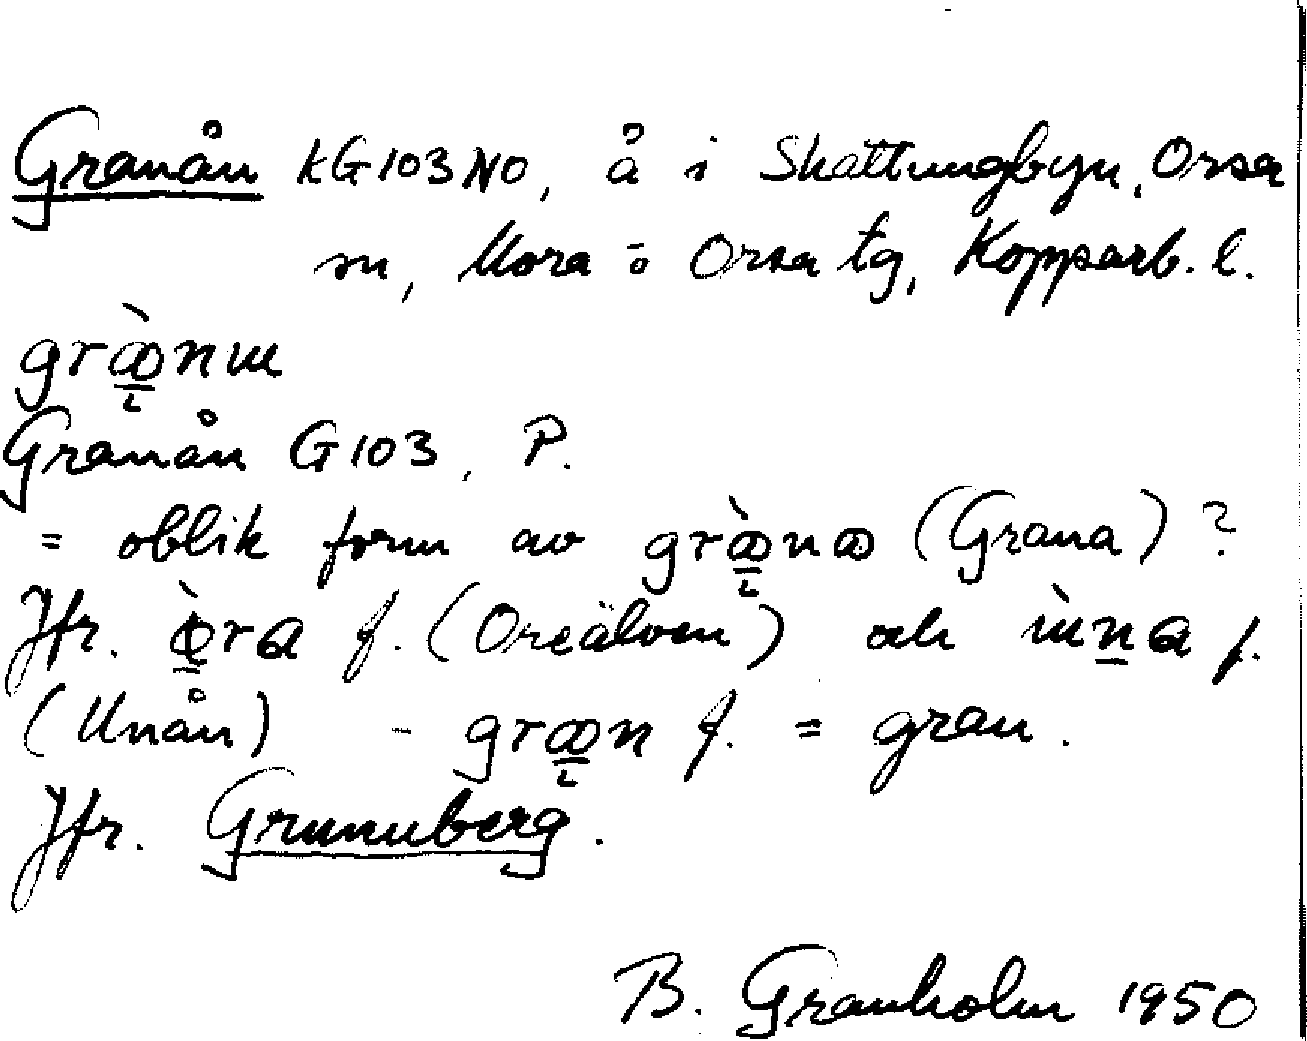 Granån KG103NO, å i Skattungbyn, Orsa
sn, Mora o Orsa tg, Kopparb. l.
Granån G103, P.
= oblik form av (Grana) ?
Jfr. f. (Oreälven) och f.
(Unån) - f. = gran.
Jfr. Grunuberg.
B. Granholm 1950